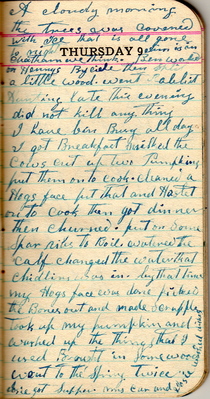 A cloudy morning
the trees was covered
with Ice that is all gone
THURSDAY 9
Chatham we think. Ben worked
on Hennys Bycicle then
a little wood. went a bit
Hunting late this evening
did not kill any thing
I have bin Busy all day.
I got Breakfast milked the
Cows cut up two Pumpkins
put them on to cook. cleaned a
Hogs face put that and Haslet
on to cook then got dinner
then churned. put on some
spar ribs to Boil. watered the
calf changed the water that
chidlins was in. by that time
my Hogs face was done picked
the Bones out and made scrapple
took up my pumpkin and
washed up the things that I
used Brought in some wood
went to the Spring twice
got supper